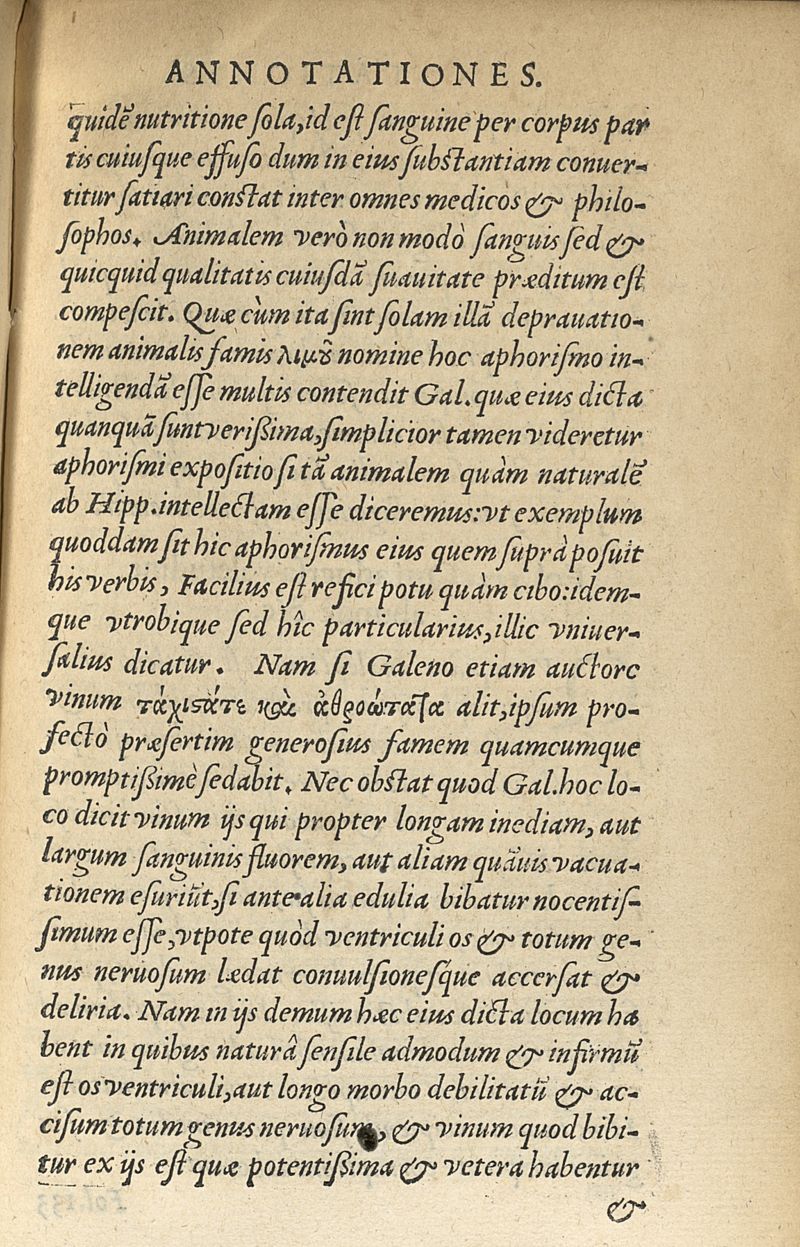 ANNOTATIONES.
quidẽ nutritione ſola, id eſt ſanguine per corpus par
tis cuiuſque effuſo dum in eius ſubſtantiam conuer-
titur ſatiari conſtat inter omnes medicos & philo-
ſophos. Animalem verò non modò ſanguis ſed &
quicquid qualitatis cuiuſdã ſuauitate præditum eſt
compeſcit. Quæ cùm ita ſint ſolam illã deprauatio-
nem animalis famis λιμοῦ nomine hoc aphoriſmo in-
telligendã eſſe multis contendit Gal. quæ eius dicta
quanquã ſunt verißima, ſimplicior tamen videretur
aphoriſmi expoſitio ſi tã animalem quàm naturalẽ
ab Hipp. intellectam eſſe diceremus: vt exemplum
quoddam ſit hic aphoriſmus eius quem ſuprà poſuit
his verbis, Facilius eſt refici potu quàm cibo: idem-
que vtrobique ſed hîc particularius, illic vniuer-
ſalius dicatur. Nam ſi Galeno etiam auctore
vinum τάχιστάτε καὶ ἀθροώτατα alit, ipſum pro-
fectò præſertim generoſius famem quamcumque
promptißimè ſedabit. Nec obſtat quod Gal. hoc lo-
co dicit vinum ijs qui propter longam inediam, aut
largum ſanguinis fluorem, aut aliam quãuis vacua-
tionem eſuriũt, ſi ante alia edulia bibatur nocentiſ-
ſimum eſſe, vtpote quòd ventriculi os & totum ge-
nus neruoſum lædat conuulſioneſq́ue accerſat &
deliria. Nam in ijs demum hæc eius dicta locum ha
bent in quibus naturâ ſenſile admodum & infirmũ
eſt os ventriculi, aut longo morbo debilitatũ & ac-
ciſum totum genus neruoſum, & vinum quod bibi-
tur ex ijs eſt quæ potentißima & vetera habentur
&